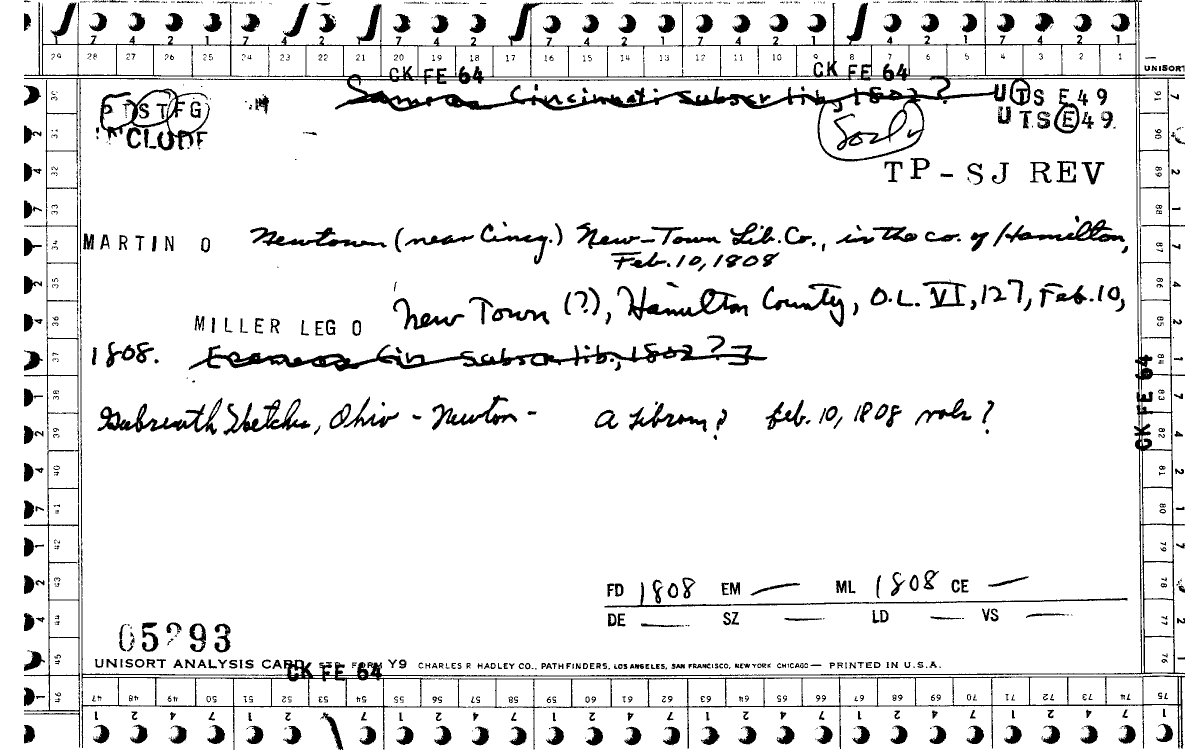 1 7 4 2 1 7 4 2 1 7 4 2 1 7 4 2 1 7 4 2 1 7 4 2 1
29 28 27 26 25 24 23 22 21 20 19 18 17 16 15 14 13 12 11 10 9 8 7 6 5 4 3 2 1
UNISORT
CK FE 64 CK FE 64
Same as Cincinnati subscr lib, 1802?
U T S E 4 9
P T S T F G
U T S E 4 9
CLUDE
Soc Lib
TP - SJ REV
MARTIN O Newtown (near Cincy.) New-Town Lib. Co., in the co. of Hamilton,
Feb. 10, 1808
MILLER LEG O New Town (?), Hamilton County, O.L. VI, 127, Feb. 10,
1808. Same as Cin subscr lib, 1802?
CK FE 64
Galbreath Sketches, Ohio - Newton - A Library? Feb. 10, 1808 vols?
FD 1808 EM — ML 1808 CE —
DE — SZ LD — VS —
05293
UNISORT ANALYSIS CARD STD. FORM Y9 CHARLES R HADLEY CO., PATHFINDERS, LOS ANGELES, SAN FRANCISCO, NEW YORK CHICAGO — PRINTED IN U.S.A.
CK FE 64
47 48 49 50 51 52 53 54 55 56 57 58 59 60 61 62 63 64 65 66 67 68 69 70 71 72 73 74 75